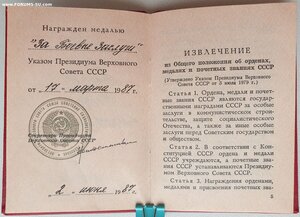 FORUMS-SU.com
Награжден медалью
"За Боевые Заслуги"
Указом Президиума Верховного
Совета СССР
от „17" марта 1987 г.
Секретарь Президиума
Верховного Совета СССР
„2" июня 1987 г.
ИЗВЛЕЧЕНИЕ
из Общего положения об орденах,
медалях и почетных званиях СССР
(Утверждено Указом Президиума Верховного
Совета СССР от 3 июля 1979 г.)
Статья 1. Ордена, медали и почетные
звания СССР являются государственными
наградами СССР за особые заслуги в
коммунистическом строительстве, защите
социалистического Отечества, а также иные
особые заслуги перед Советским государством
и обществом.
Статья 2. В соответствии с Конституцией
СССР ордена и медали СССР учреждаются, а
почетные звания СССР устанавливаются
Президиумом Верховного Совета СССР.
Статья 3. Награждения орденами,
медалями и присвоение почетных
5